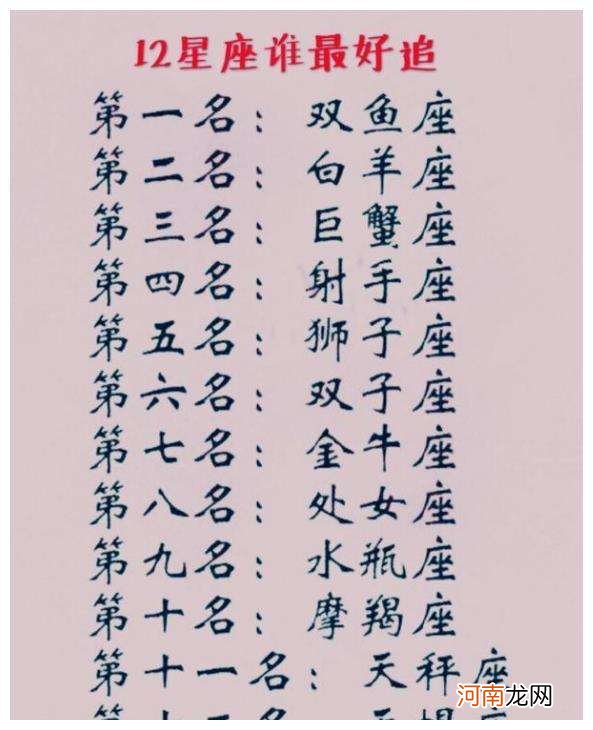 12星座谁最好追
第一名：双鱼座
第二名：白羊座
第三名：巨蟹座
第四名：射手座
第五名：狮子座
第六名：双子座
第七名：金牛座
第八名：处女座
第九名：水瓶座
第十名：摩羯座
第十一名：天秤座
河南龙网